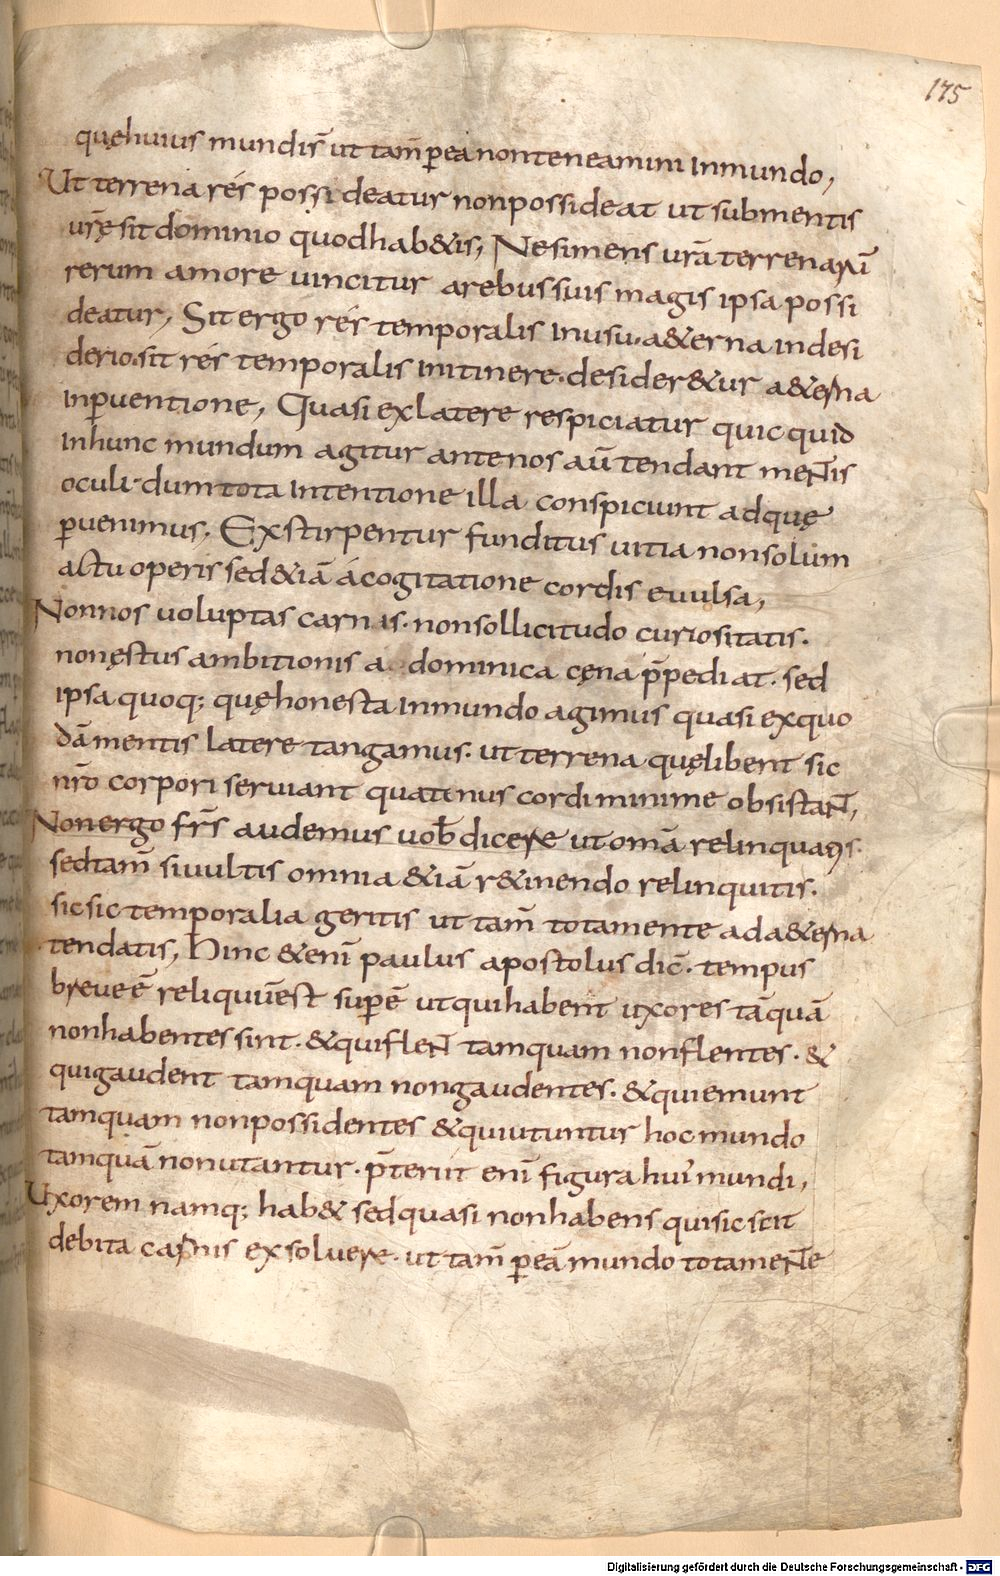 175
quęhuius mundis̄ ut tam̄ ꝑea nonteneamini Inmundo,
Ut terrena rés possideatur nonpossideat ut submentis
ur̄ę sit dominio quodhab&is, Nesimens ur̄a terrenarū
rerum amore uincitur arebussuis magis ipsa possi
deatur, Sit ergo rés temporalis Inusu. a&erna indesi
derio. sit rés temporalis Initinere. desider&ur a&erna
Inꝑuentione, Quasi exlatere respiciatur quicquid
Inhunc mundum agitur antenos aū tendant mentis
oculi. dum tota Intentione illa conspiciunt adquę
ꝑuenimus. Exstirpentur funditus uitia nonsolum
actu operis sed&iā ácogitatione cordis euulsa,
Nonnos uoluptas carnis. nonsollicitudo curiositatis.
nonęstus ambitionis a dominica cęna p̄pediat. sed
ipsa quoq; quęhonesta Inmundo agimus quasi exquo
dā mentis latere tangamus. ut terrena quęlibent sic
nr̄o corpori seruiant quatinus cordi minime obsistant,
Nonergo fr̄s audemus uob̄ dicere ut om̄a relinquatis.
sedtam̄ siuultis omnia &iā r&inendo relinquitis.
sicsic temporalia geritis ut tam̄ totamente ada&erna
tendatis, Hinc &enī paulus apostolus dic̄. tempus
breue ē reliquūest suꝑē utquihabent uxores tāquā
nonhabentes sint. &quiflent tamquam nonflentes. &
quigaudent tamquam nongaudentes. &quiemunt
tamquam nonpossidentes &quiutuntur hoc mundo
tamquā nonutantur. p̄teriit enī figura hui' mundi,
Uxorem namq; hab& sedquasi nonhabens quisic scit
debita carnis exsoluere. ut tam̄ ꝑeā mundo totamente
Digitalisierung gefördert durch die Deutsche Forschungsgemeinschaft - DFG